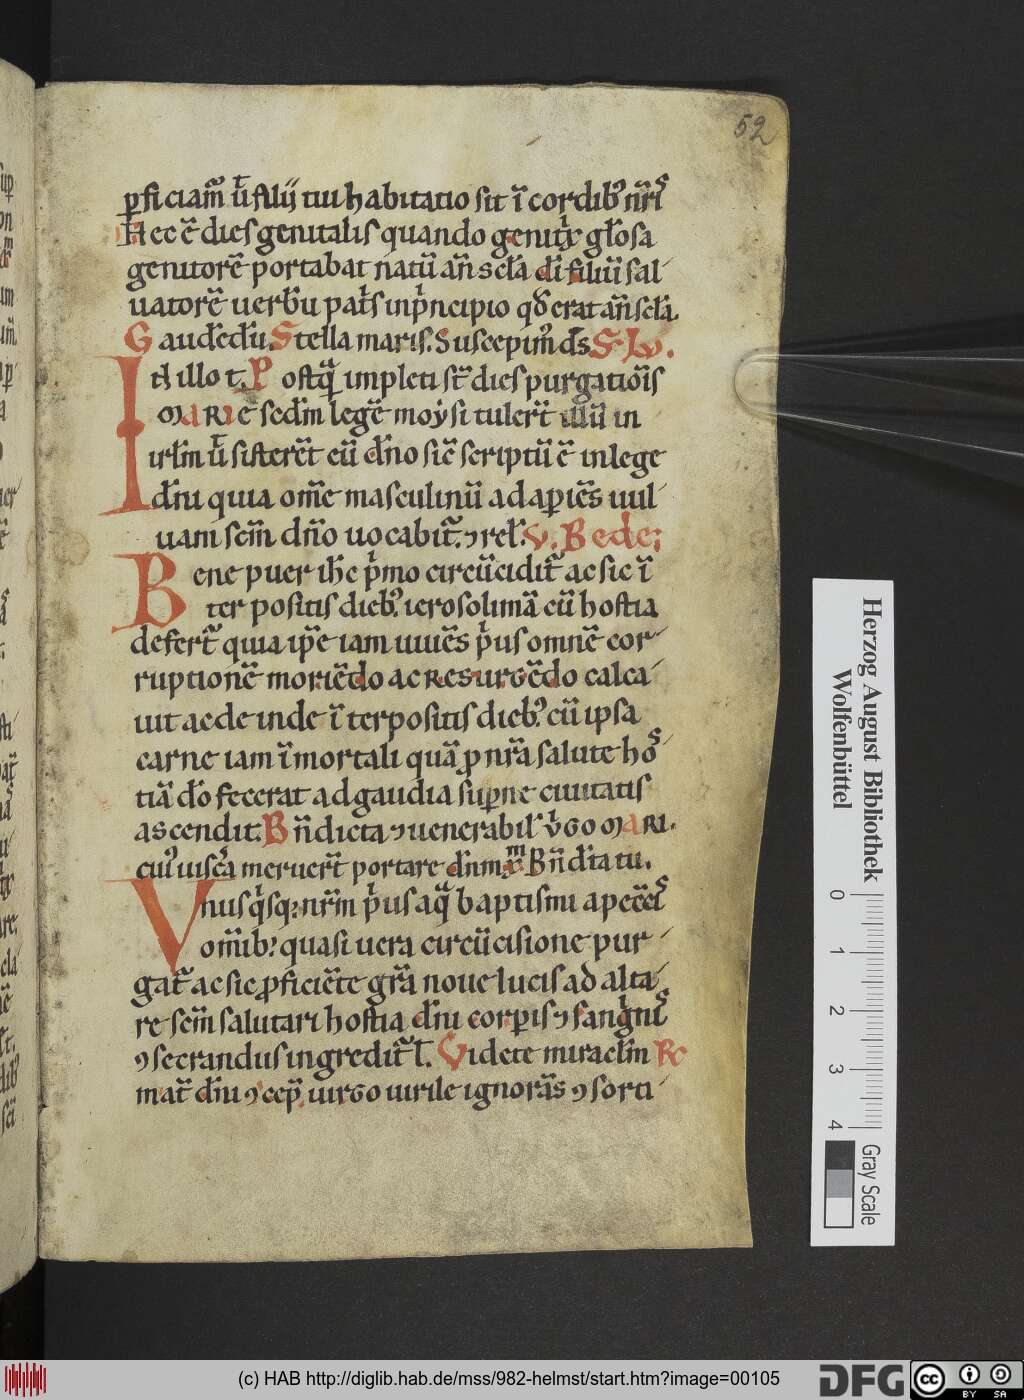 52
ꝑficiam᷒ ut̄ filij tui habitatio sit ī cordib᷒ nr̄is
Hec ē dies genitalis quando genitx̍ glosa
genitorē portabat natū an̄ scl̄a dī filiū sal
uatorē uerbū pat̍s in pͥncipio qđ erat an̄ scl̄a.
Gaude dī u. Stella maris. Suscepim᷒ ds S. Lv.
In illo t. Postqͣ impleti st̄ dies purgatiōis
MARIE scdm̄ legē moẏsi tulert̄ illū in
irlm̄ ut̄ sisterēt eū dn̄o sic̄ scriptū ē in lege
dn̄i quia om̄e masculinū adapiēs uul
uam scm̄ dn̄o uocabit᷑. ⁊ rel. V. Bede;
Bene puer ih̄c pͥmo circūcidit᷑ ac sic ī
ter positis dieb᷒ ierosolimā cū hostia
defert᷑ quia ip̄e iam uiuēs pͥus omnē cor
ruptionē moriēdo ac resurgēdo calca
uit ac deinde ī terpositis dieb᷒ cū ipsa
carne iam īmortali quā ꝓ nr̄a salute hos
tiā do fecerat ad gaudia supne ciuitatis
ascendit. Bn̄dicta ⁊ uenerabil̄ vͥgo MARI.
cui᷒ uiscͣa meruert̄ portare dn̄m xm. Bn̄dicta tu.
Vnusqͥsq; nr̄m pͥus aqͣ baptismi a pccīs
om̄ib; quasi uera circūcisione pur
gat᷑ ac sic ꝓficiēte gr̄a noue lucis ad alta
re scm̄ salutari hostia dn̄i corpis ⁊ sangͥnis
ꝯsecrandus ingredit᷑ l. Videte miraclm̄ Rc
mat̄ dn̄i ꝯcep̄. uirgo uirile ignorās ꝯsorti
Herzog August Bibliothek
Wolfenbüttel
0 1 2 3 4
Gray Scale
(c) HAB http://diglib.hab.de/mss/982-helmst/start.htm?image=00105
DFG
cc BY SA